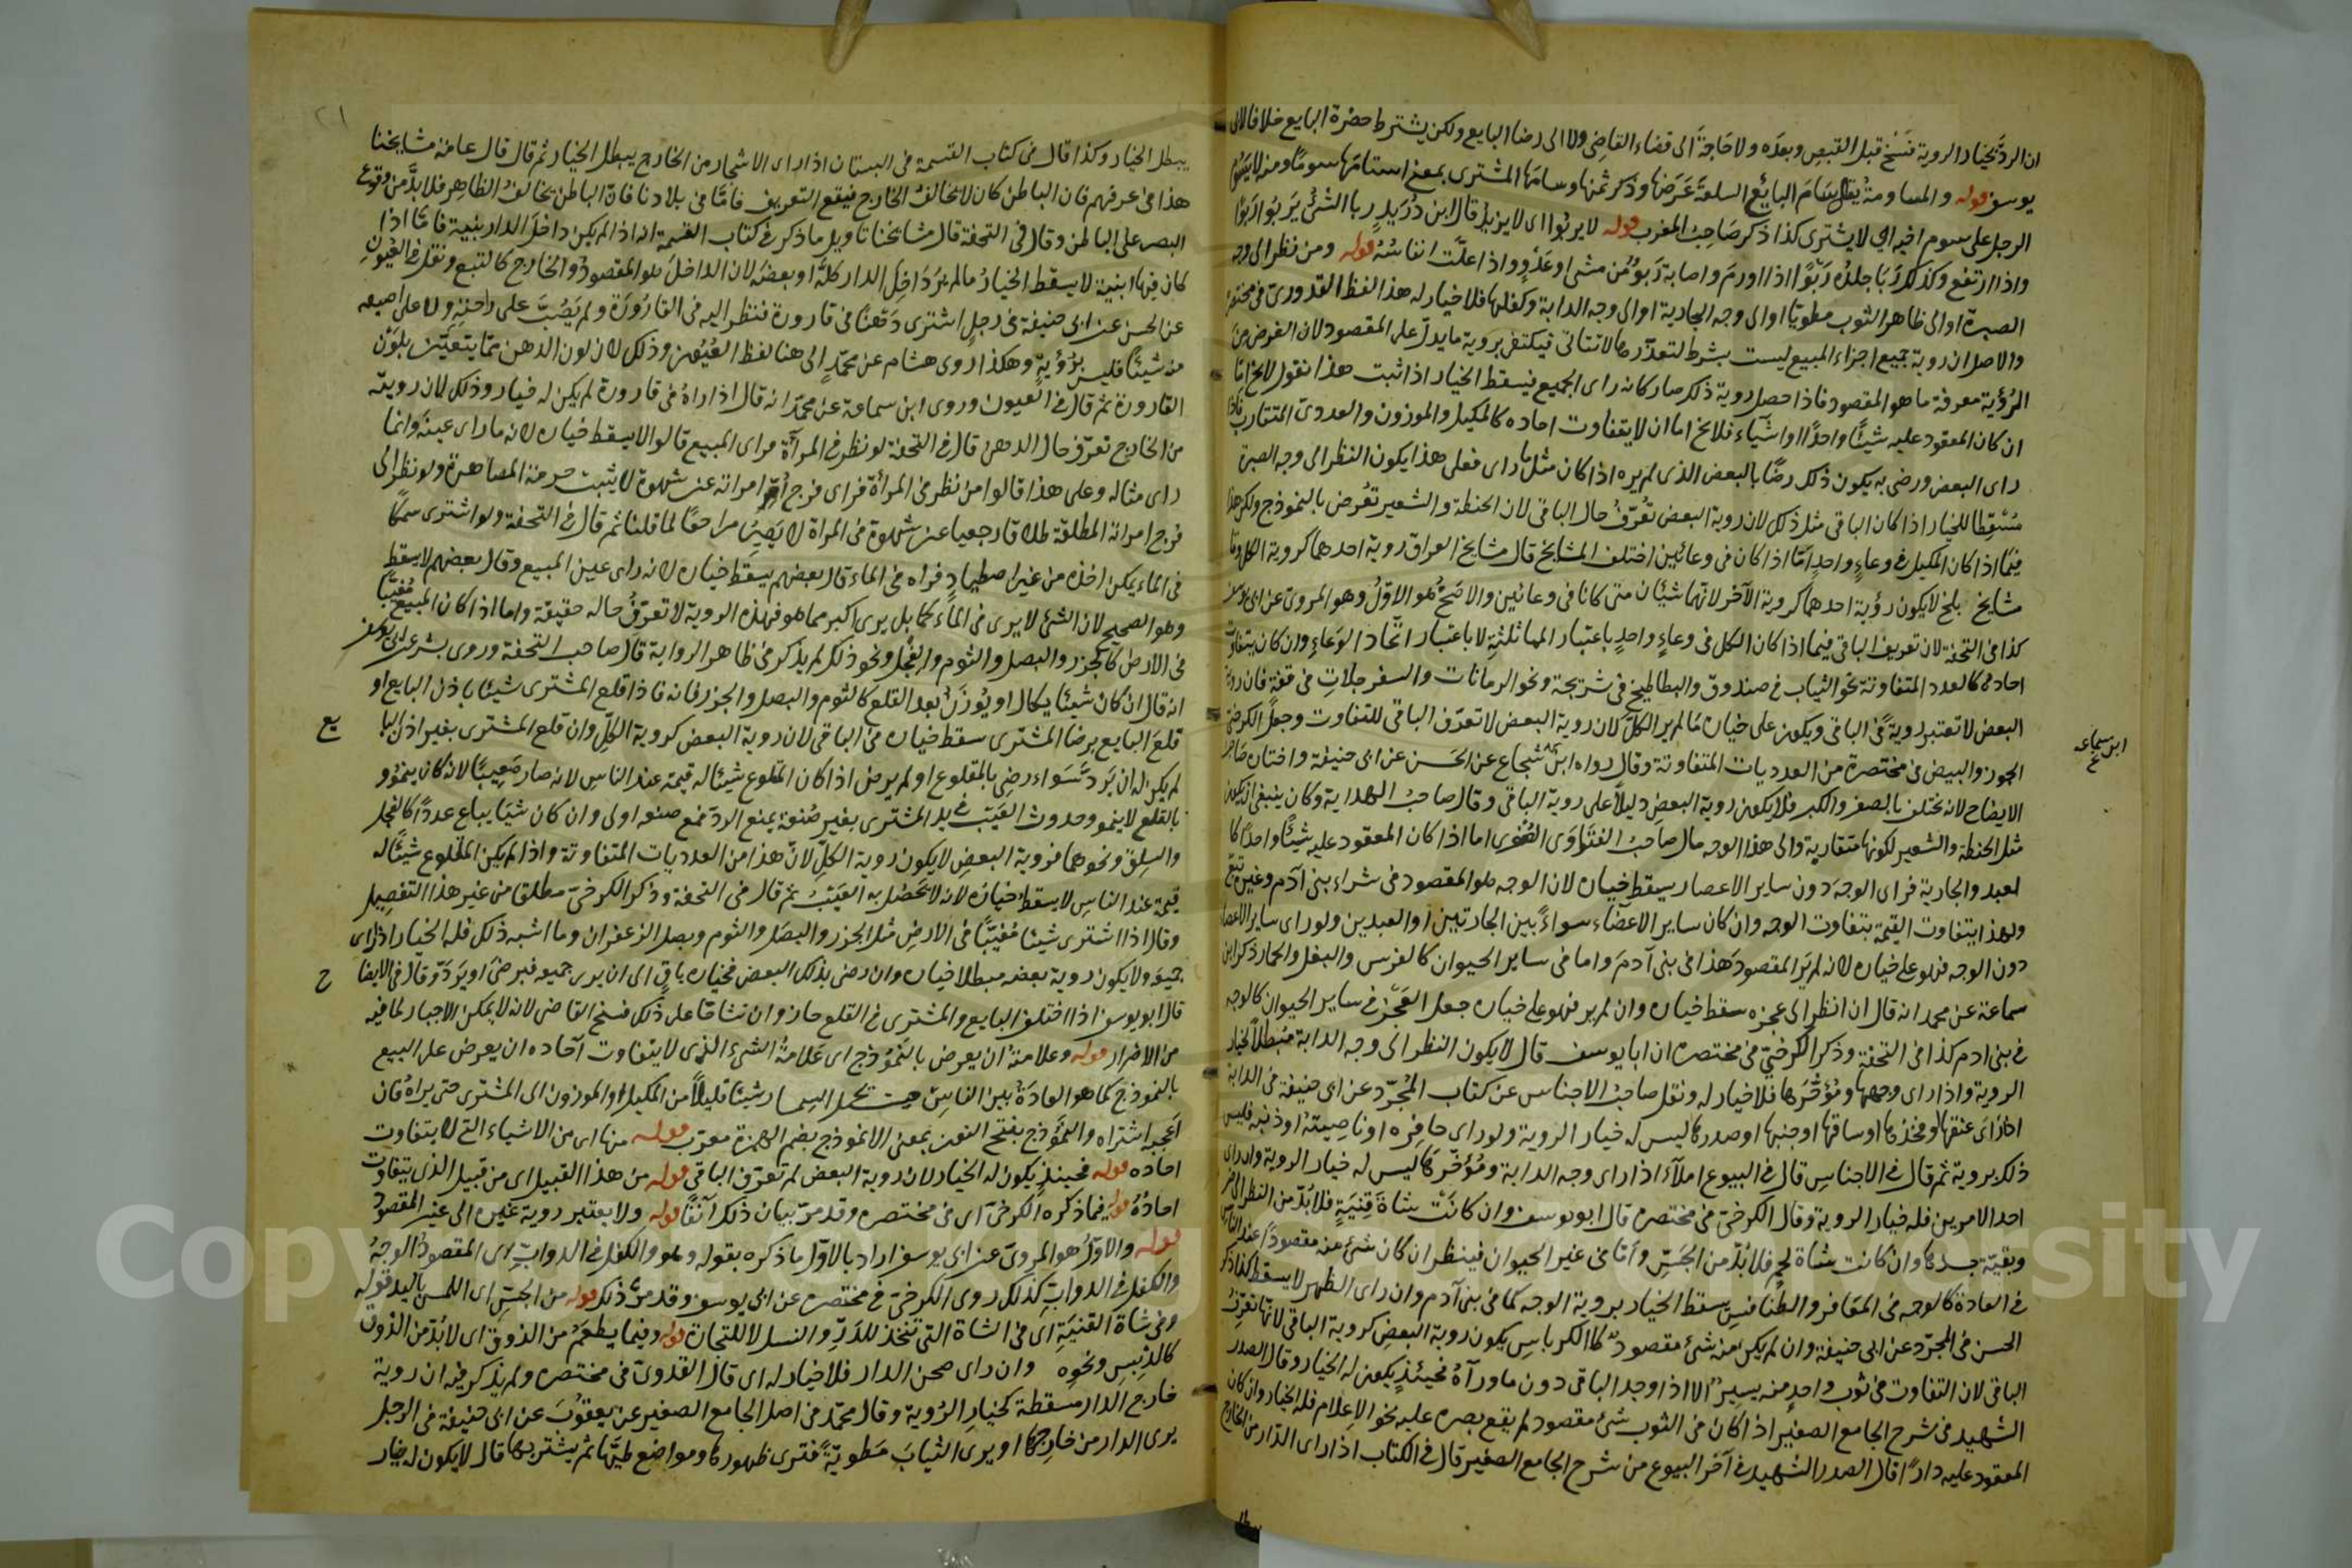 ان الرد بخيار الروية فسخ قبل القبض وبعده ولا حاجة الى قضاء القاضي ولا الى رضا البايع ولكن يشترط حضرة البايع خلافا لابي
يوسف قوله والمساومة يقال سام البايع السلعة عرضها وذكر ثمنها وسامها المشترى بمعنى استامها سوما ومنه لا يسوم
الرجل على سوم اخيه اي لا يشترى كذا ذكر صاحب المغرب قوله لا يربوا اى لا يزيد قال ابن دريد ربا الشئ يربو اربوا
واذا ارتفع وكذلك ربا جلده ربوا اذا اورم واصابه ربو من مشى او عدو واذا علت انفاسه قوله ومن نظر الى وجه
الصبرة او الى ظاهر الثوب مطويا او الى وجه الجارية او الى وجه الدابة وكفلها فلا خيار له هذا لفظ القدورى في مختصره
والاصل ان روية جميع اجزاء المبيع ليست بشرط لتعذرها فيكتفى بروية ما يدل على المقصود لان الغرض من
الرؤية معرفة ما هو المقصود فاذا حصل روية ذلك صار كانه راى الجميع فيسقط الخيار اذا ثبت هذا نقول لا يخ اما
ان كان المعقود عليه شيئا واحدا او اشياء فلا يخ اما ان لا يتفاوت احاده كالمكيل والموزون والعددى المتقارب فاذا
راى البعض ورضى به يكون ذلك رضا بالبعض الذى لم يره اذا كان مثل ما راى فعلى هذا يكون النظر الى وجه الصبرة
مسقطا للخيار اذا كان الباقى مثل ذلك لان روية البعض تعرف حال الباقى لان الحنطة والشعير تعرض بالنموذج ولكن هذا
فيما اذا كان المكيل في وعاء واحد اما اذا كان في وعائين اختلف المشايخ قال مشايخ العراق روية احدهما كروية الكل وقال
مشايخ بلخ لا يكون رؤية احدهما كروية الآخر لانهما شيئان متى كانا في وعائين والاصح هو الاول وهو المروى عن ابى يوسف
كذا في التحفة لان تعريف الباقى فيما اذا كان الكل في وعاء واحد باعتبار المماثلة لا باعتبار اتحاد الوعاء وان كان يتفاوت
احاده كالعدد المتفاوتة نحو الثياب في صندوق والبطاطيخ في شريجة ونحو الرمانات والسفرجلات في قفة فان روية
البعض لا تعتبر روية في الباقى ويكون على خياره ما لم ير الكل لان روية البعض لا تعرف الباقى للتفاوت وجعل الكرخى
الجوز والبيض في مختصره من العدديات المتفاوتة وقال رواه ابن شجاع عن الحسن عن ابى حنيفة واختاره صاحب
الايضاح لانه يختلف بالصغر والكبر فلا يكون روية البعض دليلا على روية الباقى وقال صاحب الهداية وكان ينبغى ان يكون
مثل الحنطة والشعير لكونها متقاربة والى هذا الوجه مال صاحب الفتاوى الصغرى اما اذا كان المعقود عليه شيئا واحدا كا
لعبد والجارية فراى الوجه دون ساير الاعضاء سقط خياره لان الوجه هو المقصود في شراء بنى آدم وغيره تبع
ولهذا يتفاوت القيمة بتفاوت الوجه وان كان ساير الاعضاء سواء بين الجاريتين او العبدين ولو راى ساير الاعضاء
دون الوجه فهو على خياره لانه لم ير المقصود هذا في بنى آدم واما في ساير الحيوان كالفرس والبغل والحمار ذكر ابن
سماعة عن محمد انه قال ان نظر الى عجزه سقط خياره وان لم ير فهو على خياره جعل العجز في ساير الحيوان كالوجه
في بنى ادم كذا في التحفة وذكر الكرخى في مختصره ان ابا يوسف قال لا يكون النظر الى وجه الدابة مبطلا لخيار
الروية واذا راى وجهها ومؤخرها فلا خيار له ونقل صاحب الاجناس عن كتاب المجرد عن ابى حنيفة في الدابة
اذا راى عنقها او فخذها او ساقها او جنبها او صدرها ليس له خيار الروية ولو راى حافره او ناصيته او ذنبه فليس
ذلك بروية ثم قال في الاجناس قال في البيوع املآء اذا راى وجه الدابة ومؤخرها ليس له خيار الروية وان راى
احد الامرين فله خيار الروية وقال الكرخى في مختصره قال ابو يوسف وان كانت شاة قنية فلا بد من النظر الى الضرع
وبقية جسدها وان كانت شاة لحم فلا بد من الجس واما في غير الحيوان فينظر ان كان شئ منه مقصودا عند الناس
في العادة كالوجه في المغافر والطنافس سقط الخيار بروية الوجه كما في بنى آدم وان راى الظهر لا يسقط كذا ذكر
الحسن في المجرد عن ابى حنيفة وان لم يكن منه شئ مقصود كالكرباس يكون روية البعض كروية الباقى لانها تعرف
الباقى لان التفاوت في ثوب واحد منه يسير الا اذا وجد الباقى دون ما رآه فحينئذ يكون له الخيار وقال الصدر
الشهيد في شرح الجامع الصغير اذا كان في الثوب شئ مقصود لم يقع بصره عليه نحو الاعلام فله الخيار وان كان
المعقود عليه دارا قال الصدر الشهيد في آخر البيوع من شرح الجامع الصغير قال في الكتاب اذا راى الدار من الخارج
ابن سماعه
يبطل الخيار وكذا قال في كتاب القسمة في البستان اذا راى الاشجار من الخارج يبطل الخيار ثم قال قال عامة مشايخنا
هذا في عرفهم فان الباطن كان لا يخالف الخارج فيقع التعريف فاما في بلادنا فان الباطن يخالف الظاهر فلا بد من وقوع
البصر على الباطن وقال في التحفة قال مشايخنا تاويل ما ذكر في كتاب القسمة انه اذا لم يكن داخل الدار بنية فاما اذا
كان فيها ابنية لا يسقط الخيار ما لم ير داخل الدار كله او بعضه لان الداخل هو المقصود والخارج كالتبع ونقل في العيون
عن الحسن عن ابى حنيفة في رجل اشترى دهنا في قارورة فنظر اليه في القارورة ولم يصب على راحته ولا على اصبعه
منه شيئا فليس برؤية وهكذا روى هشام عن محمد الى هنا لفظ العيون وذلك لان لون الدهن مما يتغير بلون
القارورة ثم قال في العيون وروى ابن سماعة عن محمد انه قال اذا راه في قارورة لم يكن له خيار وذلك لان رويته
من الخارج تعرف حال الدهن قال في التحفة لو نظر في المرآة فراى المبيع قالوا لا يسقط خياره لانه ما راى عينه وانما
راى مثاله وعلى هذا قالوا من نظر في المرآة فراى فرج امراته عن شهوة لا يثبت حرمة المصاهرة ولو نظر الى
فرج امراته المطلقة طلاقا رجعيا عن شهوة في المراة لا يصير مراجعا لما قلنا ثم قال في التحفة ولو اشترى سمكا
في الماء يمكن اخذه من غير اصطياد فراه في الماء قال بعضهم يسقط خياره لانه راى عين المبيع وقال بعضهم لا يسقط
وهو الصحيح لان الشئ لا يرى في الماء كما بل يرى اكبر مما هو فهذه الروية لا تعرف حاله حقيقة واما اذا كان المبيع مغيبا
في الارض كالجزر والبصل والثوم والفجل ونحو ذلك لم يذكر في ظاهر الرواية قال صاحب التحفة وروى بشر عن ابى يوسف
انه قال ان كان شيئا يكال او يوزن بعد القلع كالثوم والبصل والجزر فانه فاذا قلع المشترى شيئا باذن البايع او
قلع البايع برضا المشترى سقط خياره في الباقى لان روية البعض كروية الكل وان قلع المشترى بغير اذن البا
يع
لم يكن له ان يرد سواء رضى بالمقلوع او لم يرض اذا كان المقلوع شيئا له قيمة عند الناس لانه صار معيبا لانه كان ينمو و
بالقلع لا ينمو وحدوث العيب في يد المشترى بغير صنعه يمنع الرد فمع صنعه اولى وان كان شيا يباع عددا كالفجل
والسلق ونحوهما فروية البعض لا يكون روية الكل لان هذا من العدديات المتفاوتة واذا لم يكن المقلوع شيئا له
قيمة عند الناس لا يسقط خياره لانه لا يحصل به العيب ثم قال في التحفة وذكر الكرخى مطلقا من غير هذا التفصيل
وقال اذا اشترى شيئا مغيبا في الارض مثل الجزر والبصل والثوم وبصل الزعفران وما اشبه ذلك فله الخيار اذا راى
جميعه ولا يكون روية بعضه مبطلا خياره وان رضى بذلك البعض فخياره باق الى ان يرى جميعه فيرضى او يرد وقال في الايضا
ح
قال ابو يوسف اذا اختلف البايع والمشترى في القلع جاز وان تشاحا على ذلك فسخ القاضى لانه لا يمكن الاجبار لما فيه
من الاضرار قوله وعلامته ان يعرض بالنموذج اى علامة الشئ الذى لا يتفاوت آحاده ان يعرض على البيع
بالنموذج كما هو العادة بين الناس حيث يحمل السمسار شيئا قليلا من المكيل او الموزون الى المشترى حتى يراه فان
اعجبه اشتراه والنموذج بفتح النون بمعنى الانموذج بضم الهمزة معرب قوله منها اى من الاشياء التى لا يتفاوت
احاده قوله فحينئذ يكون له الخيار لان روية البعض لم تعرف الباقى قوله من هذا القبيل اى من قبيل الذى يتفاوت
احاده قوله فيما ذكره الكرخى اى في مختصره وقد مر بيان ذلك آنفا قوله ولا يعتبر روية غيره الى غير المقصود
قوله والاول هو المروى عن ابى يوسف اراد بالاول ما ذكره بقوله وهو والكفل في الدواب اى المقصود الوجه
والكفل في الدواب كذلك روى الكرخى في مختصره عن ابى يوسف وقد مر ذلك قوله من الجس اى اللمس باليد قوله
وفى شاة القنية اى في الشاة التى تتخذ للدر والنسل لا للتجارة قوله وفيما يطعم من الذوق اى لا بد من الذوق
كالدبس ونحوه وان راى صحن الدار فلا خيار له اى قال القدورى في مختصره ولم يذكر فيه ان روية
خارج الدار مسقطة لخيار الرؤية وقال محمد في اصل الجامع الصغير عن يعقوب عن ابى حنيفة في الرجل
يرى الدار من خارجها او يرى الثياب مطوية فترى ظهورها ومواضع طيها ثم يشتريها قال لا يكون له خيار
Copyright © King Saud University